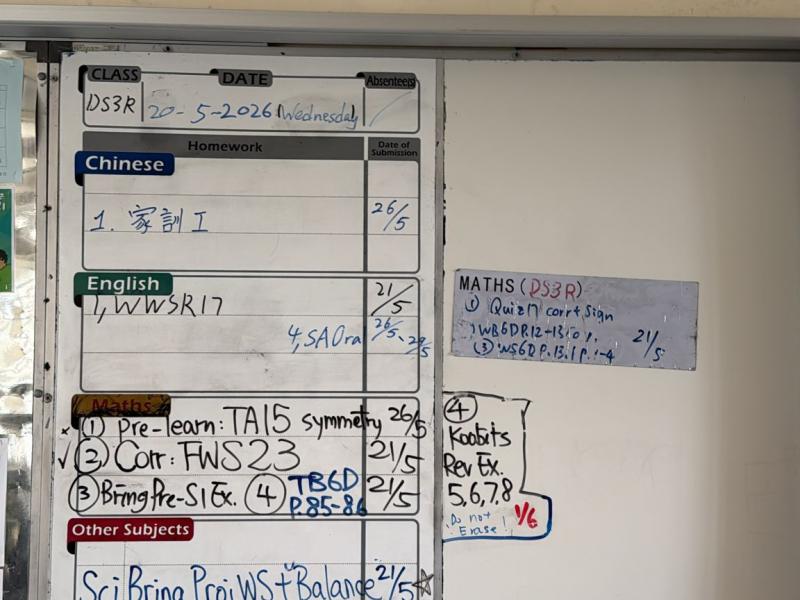 CLASS DATE Absentee(s)
DS3R 20-5-2026 Wednesday /
Homework Date of Submission
Chinese
1. 家訓工 26/5
English
1, WWSR17 21/5
4, SAOra 26/5、29/5
Maths
① Pre-learn: TA15 symmetry 26/5
✓ ② Corr: FWS23 21/5
③ Bring Pre-S1 Ex. ④ TB6D P.85-86 21/5
Other Subjects
Sci Bring Proj WS + Balance 21/5 ☆
MATHS (DS3R)
① Quiz17 corr + sign
WB6D P.12-13
③ WS6D P.13.1 P.1-4 21/5
④
Koobits
Rev Ex.
5,6,7,8
Do not Erase! 1/6